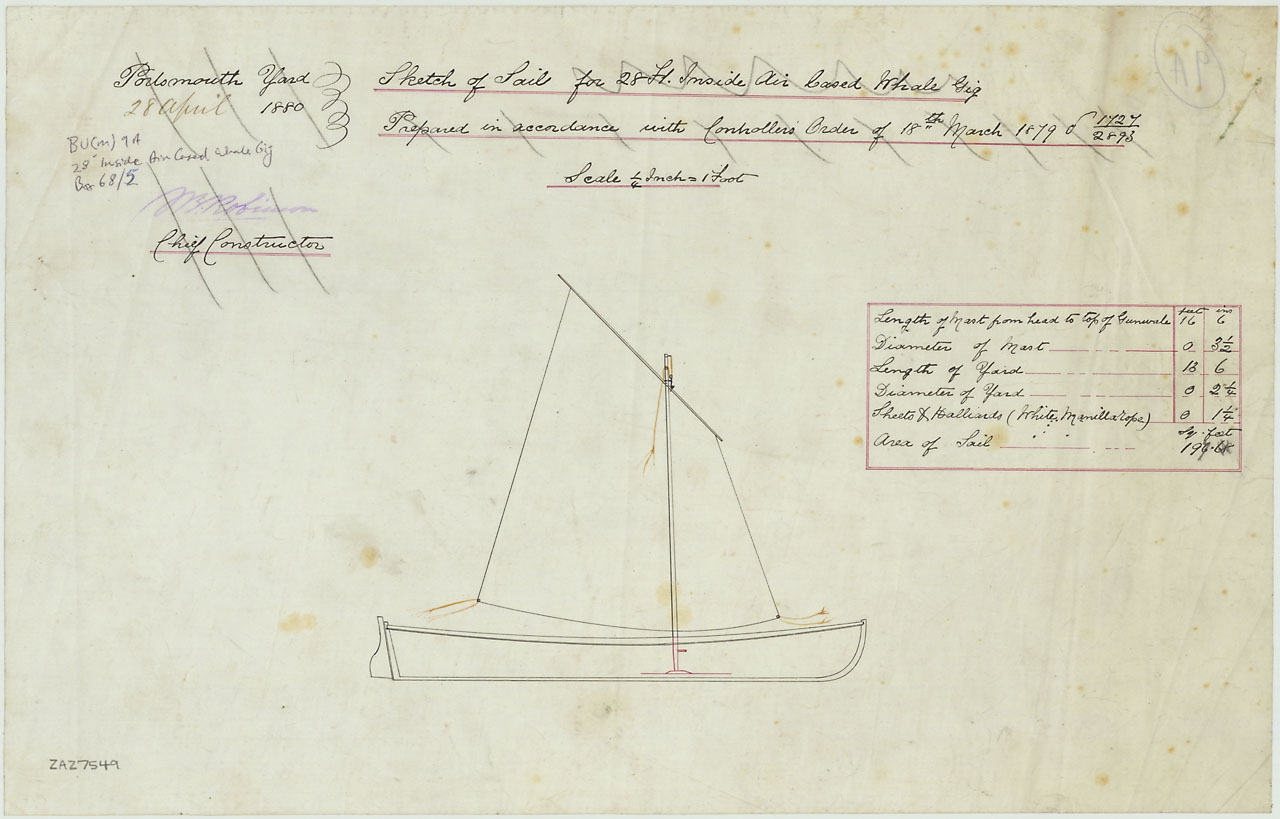 9A
Portsmouth Yard
28 April 1880
BU(m) 9A
28' Inside Air Cased Whale Gig
Box 68/5
Chief Constructor
Sketch of Sails for 28 Ft. Inside Air Cased Whale Gig
Prepared in accordance with Controllers Order of 18th March 1879 S 1727/2893
Scale ¼ Inch = 1 Foot
feet ins
Length of Mast from head to top of Gunwale 16 6
Diameter of Mast 0 3½
Length of Yard 13 6
Diameter of Yard 0 2¼
Sheets & Halliards (White Manilla rope) 0 1¼
Sq. feet
Area of Sail
ZAZ7549